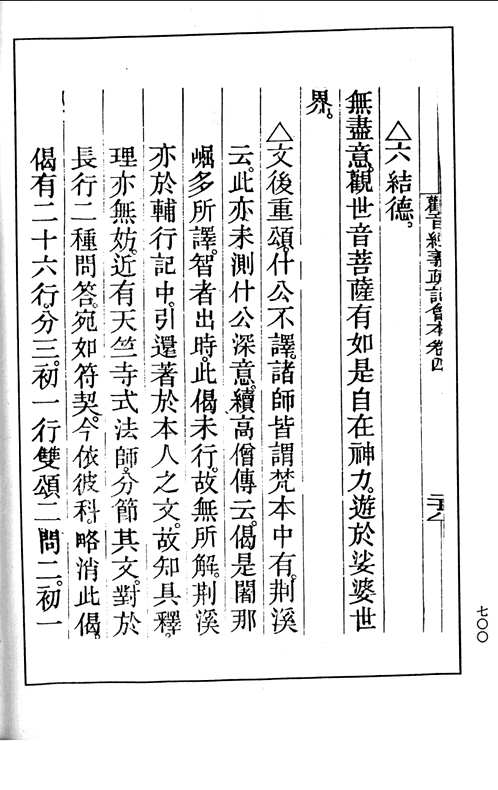 觀音經義疏記會本卷四
△六結德。
無盡意。觀世音菩薩有如是自在神力。遊於娑婆世
界。
△文後重頌。什公不譯。諸師皆謂梵本中有。荆溪
云。此亦未測什公深意。續高僧傳云。偈是闍那
崛多所譯。智者出時。此偈未行。故無所解。荆溪
亦於輔行記中。引還著於本人之文。故知具釋。
理亦無妨。近有天竺寺式法師。分節其文。對於
長行二種問答。宛如符契。今依彼科。略消此偈。
偈有二十六行。分三。初一行雙頌二問二。初一
七〇〇